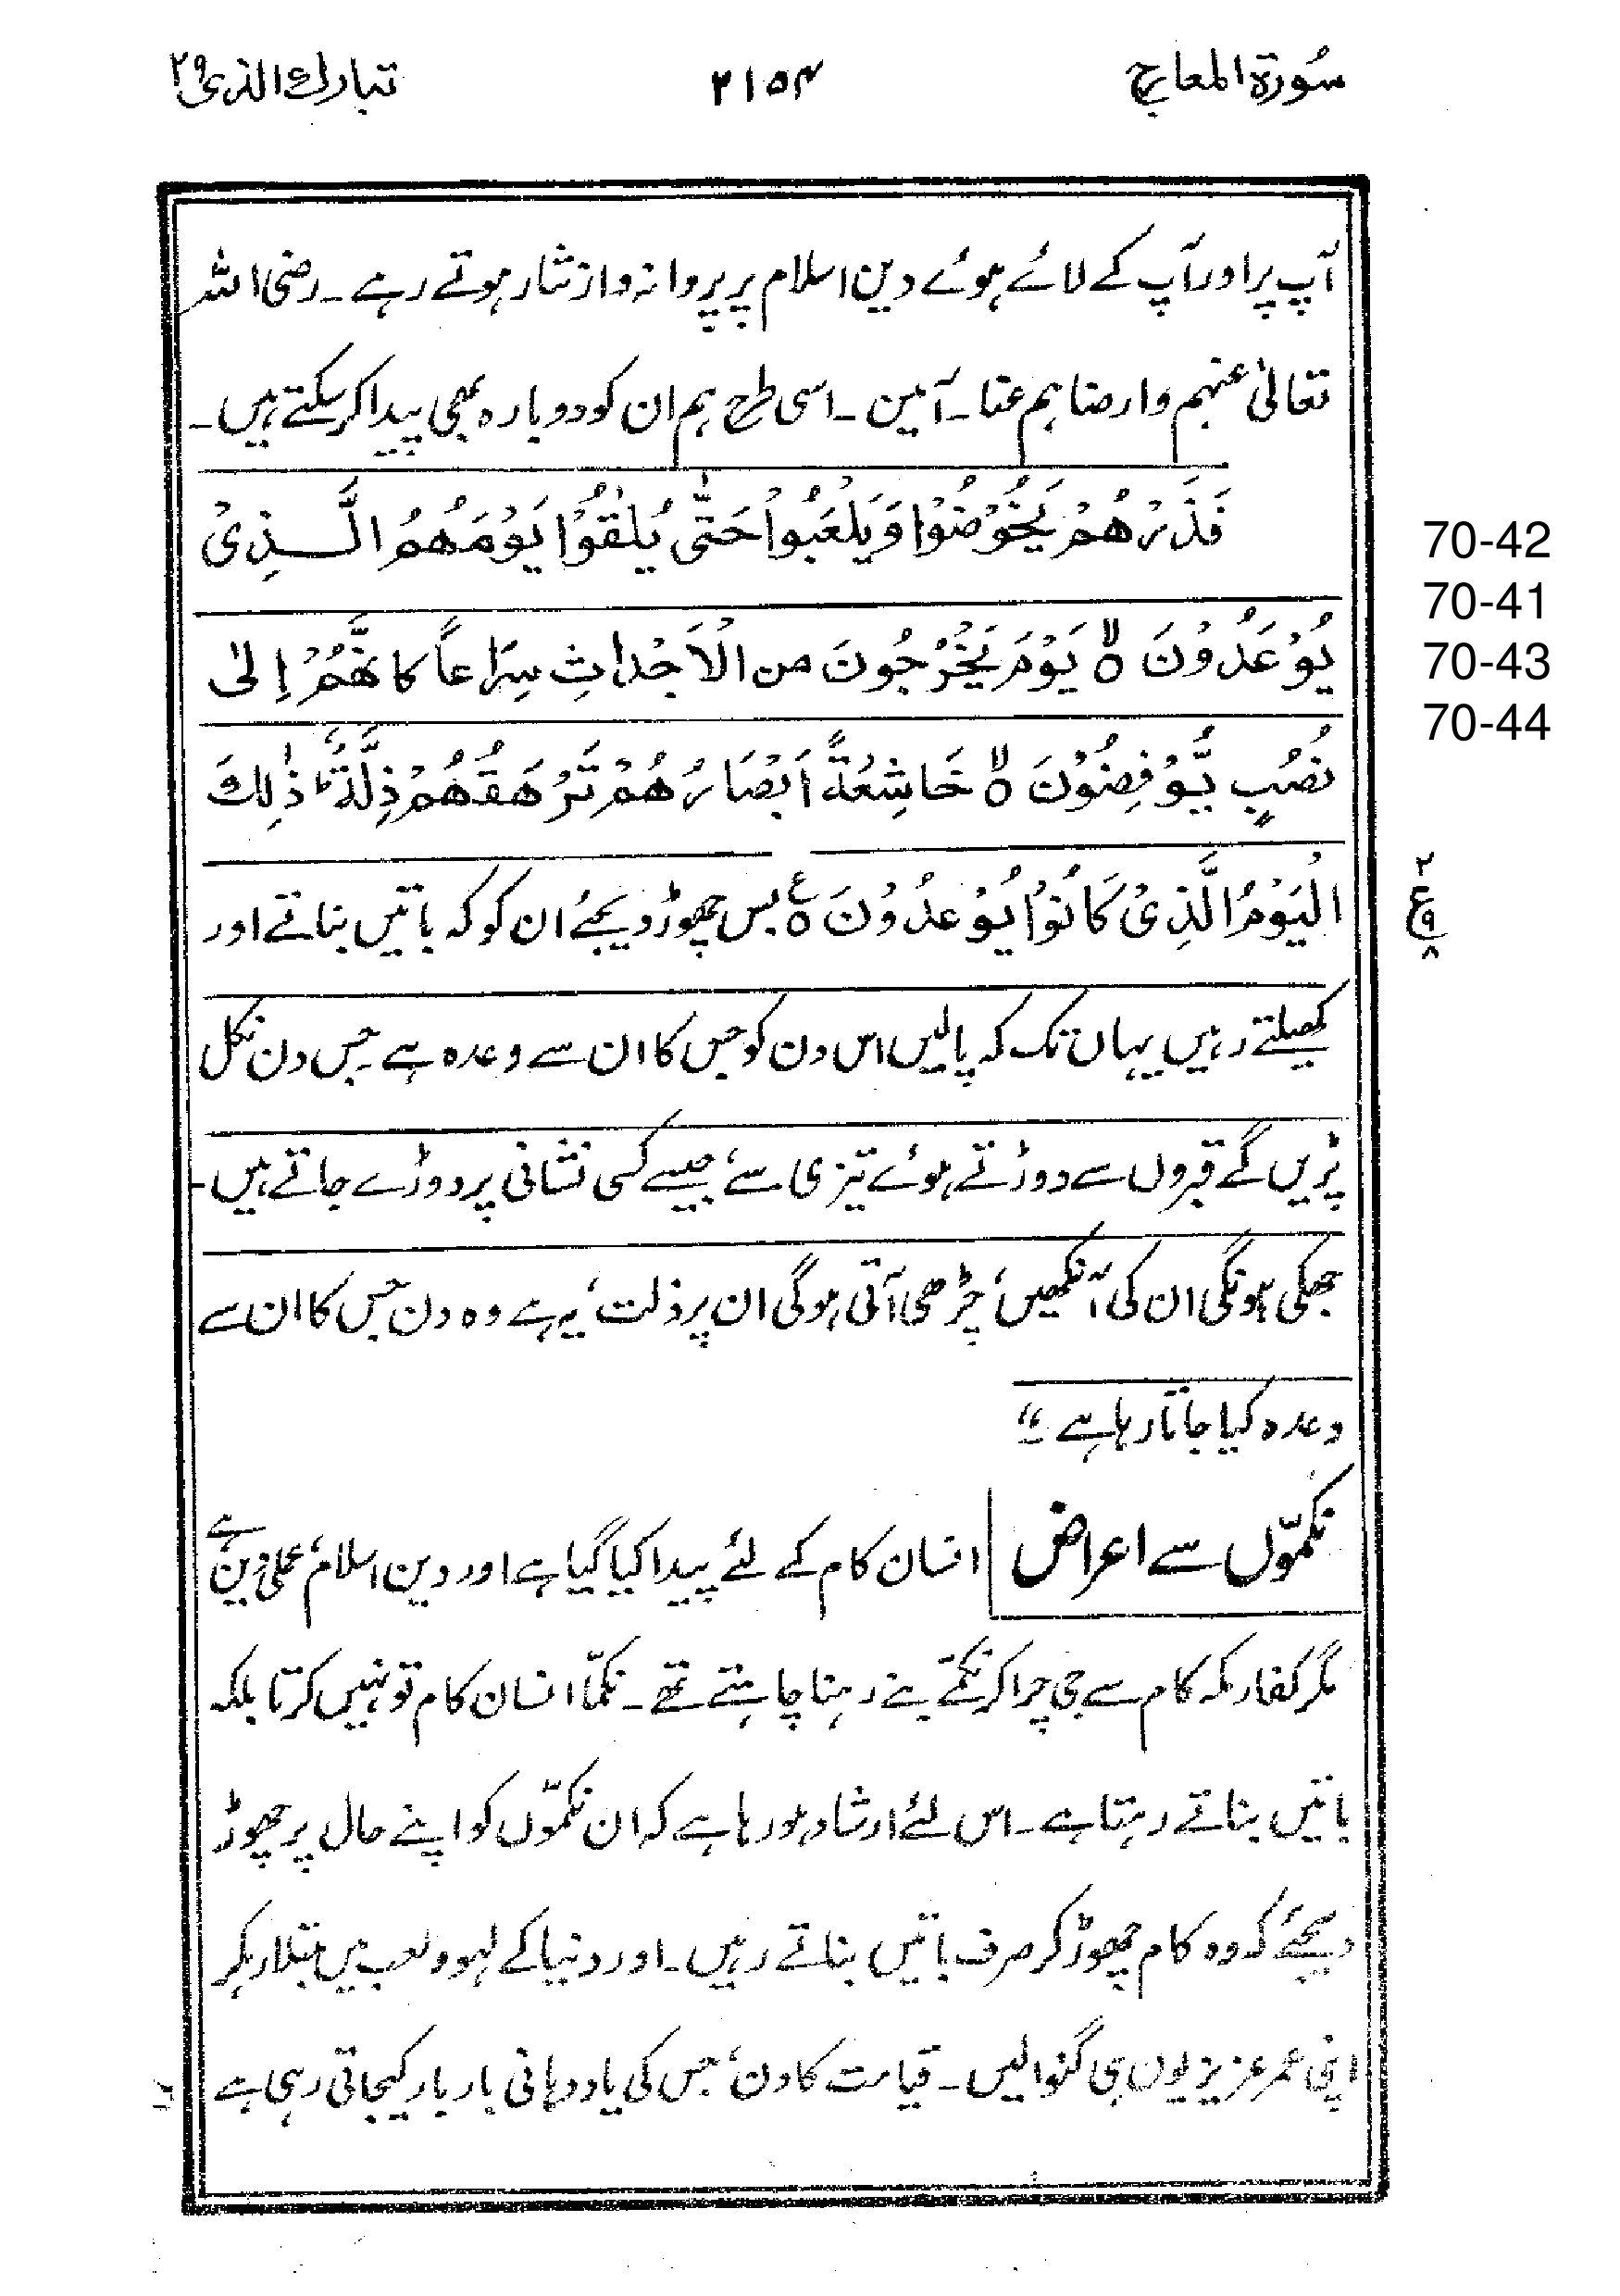 سُورۃ المعارج ۲۱۵۴ تبارك الذی ۲۹
آپ پر اور آپ کے لائے ہوئے دین اسلام پر پروانہ وار نثار ہوتے رہے ۔ رضی اللہ
تعالیٰ عنہم وارضاہم عنا ۔ آمین ۔ اسی طرح ہم ان کو دوبارہ بھی پیدا کرسکتے ہیں ۔
فَذَرْهُمْ يَخُوْضُوْا وَيَلْعَبُوْا حَتّٰى يُلٰقُوْا يَوْمَهُمُ الَّذِىْ
يُوْعَدُوْنَ ۙ يَوْمَ يَخْرُجُونَ من الْاَجْدَاثِ سِرَاعاً كانَّهُمْ اِلٰى
نُصُبٍ يُّوْفِضُوْنَ ۙ خَاشِعَةً اَبْصَارُهُمْ تَرْهَقُهُمْ ذِلَّةٌ ؕ ذٰلِكَ
الْيَوْمُ الَّذِىْ كَانُوْا يُوْعدُوْنَ ۠ بس چھوڑ دیجئے ان کو کہ باتیں بناتے اور
کھیلتے رہیں یہاں تک کہ پالیں اس دن کو جس کا ان سے وعدہ ہے ۔ جس دن نکل
پڑیں گے قبروں سے دوڑتے ہوئے تیزی سے، جیسے کسی نشانی پر دوڑے جاتے ہیں ۔
جھکی ہونگی ان کی آنکھیں، چڑھی آتی ہوگی ان پر ذلت، یہ ہے وہ دن جس کا ان سے
وعدہ کیا جاتا رہا ہے ۔“
نکمّوں سے اعراض انسان کام کے لئے پیدا کیا گیا ہے اور دین اسلام، عملی دین ہے
مگر کفار مکہ کام سے جی چرا کر نکمّے بنے رہنا چاہتے تھے ۔ نکمّا انسان کام تو نہیں کرتا بلکہ
باتیں بناتے رہتا ہے ۔ اس لئے ارشاد ہورہا ہے کہ ان نکمّوں کو اپنے حال پر چھوڑ
دیجئے کہ وہ کام چھوڑ کر صرف باتیں بناتے رہیں ۔ اور دنیا کے لہو و لعب میں مبتلا رہکر
اپنی عمر عزیز یوں ہی گنوالیں ۔ قیامت کا دن، جس کی یاد دہانی بار بار کیجاتی رہی ہے
70-42
70-41
70-43
70-44
۲
ع
۹
۸